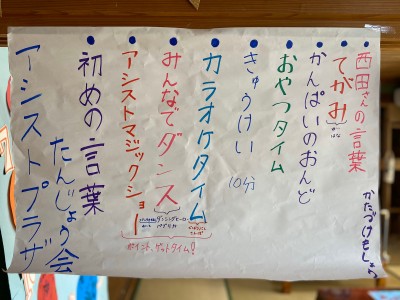 アシストプラザ
たんじょう会
初めの言葉
アシストマジックショー
みんなでダンス
ダンシングヒーロー
パプリカ
カラオケタイム
きゅうけい
10分
おやつタイム
かんぱいのおんど
てがみ
西田さんの言葉
かたづけもしよう